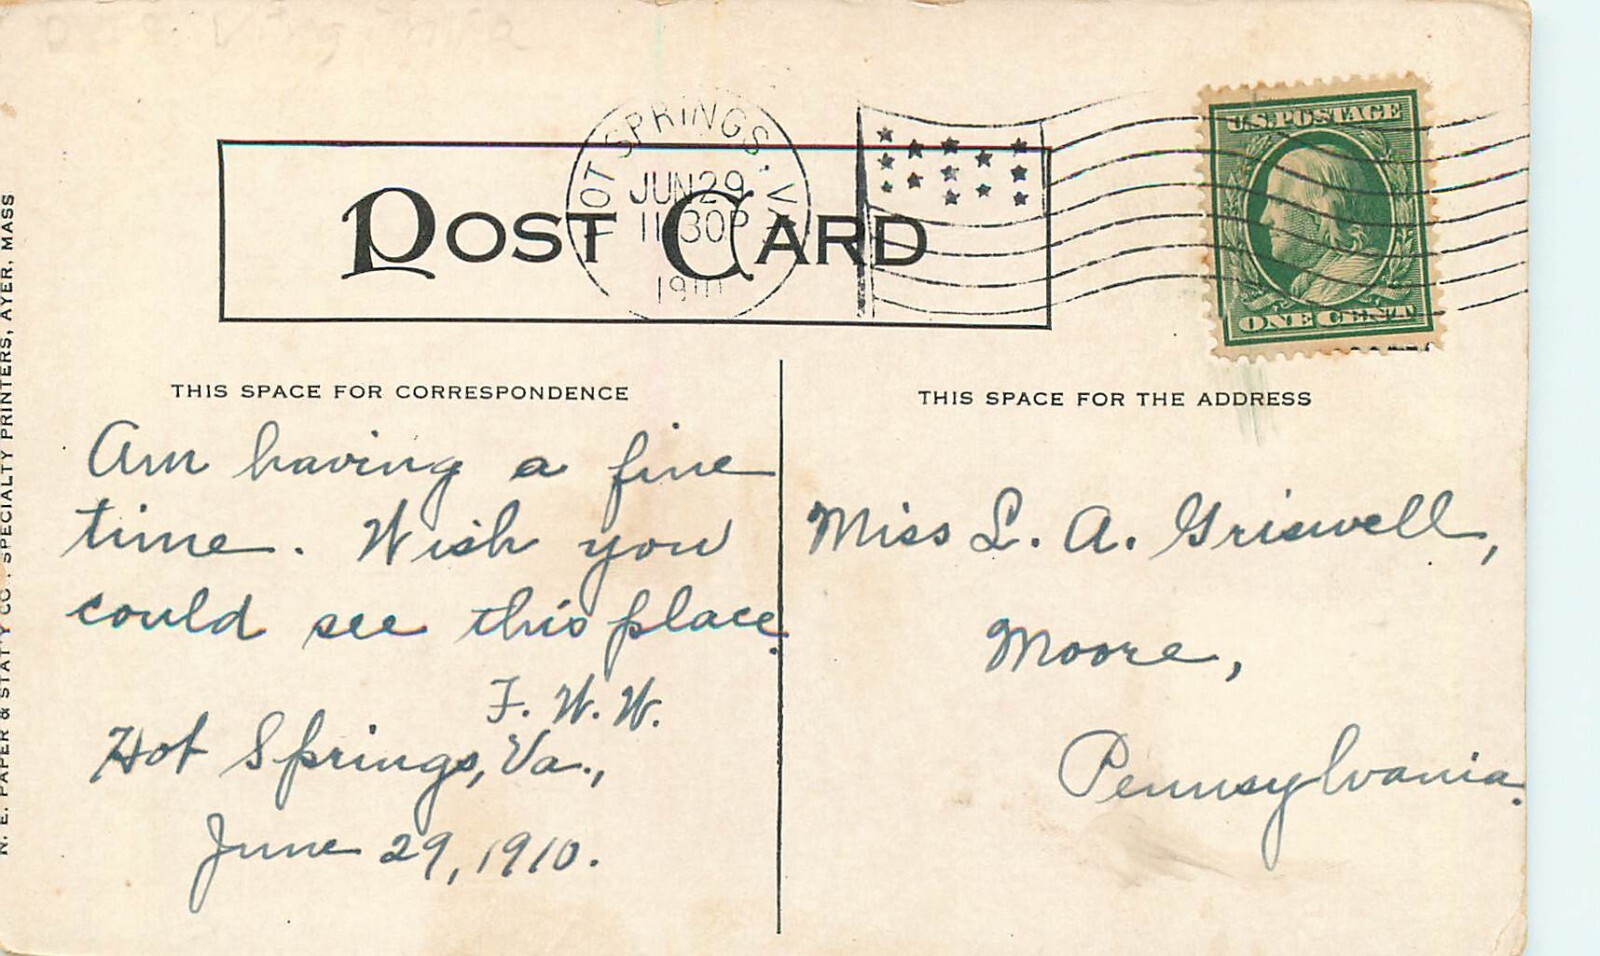 U.S. POSTAGE
ONE CENT
HOT SPRINGS. VA
JUN 29
11 30P
1910
POST CARD
THIS SPACE FOR CORRESPONDENCE
Am having a fine
time. Wish you
could see this place.
F. W. W.
Hot Springs, Va.,
June 29, 1910.
THIS SPACE FOR THE ADDRESS
Miss L. A. Griswell,
Moore,
Pennsylvania.
N. E. PAPER & STAT'Y CO. SPECIALTY PRINTERS, AYER, MASS
Virginia